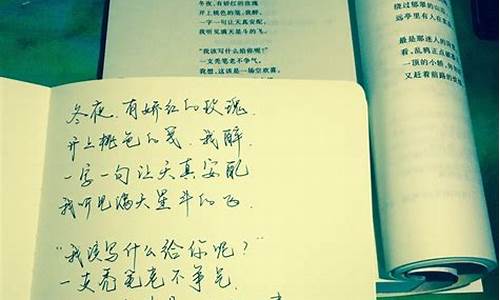 冬夜,有娇红的玫瑰
开上桃色的笺,我醉,
一字一句让天真安配,
我听见满天星斗的飞。
“我该写什么给你呢?”
一支秃笔老不争气。
我想,这该是一场空欢喜。
绕过郁翠的山
远亭里有人在
最是那迷人的
看,乱鸦正点破
一顶的小轿,
又赶着前路的
冬夜.有娇红的玫瑰.
开上桃色的笺.我醉.
一字一句让天真安配
我听见满天星斗的飞.
“我该写什么给你呢?”
一支秃笔老不争气.